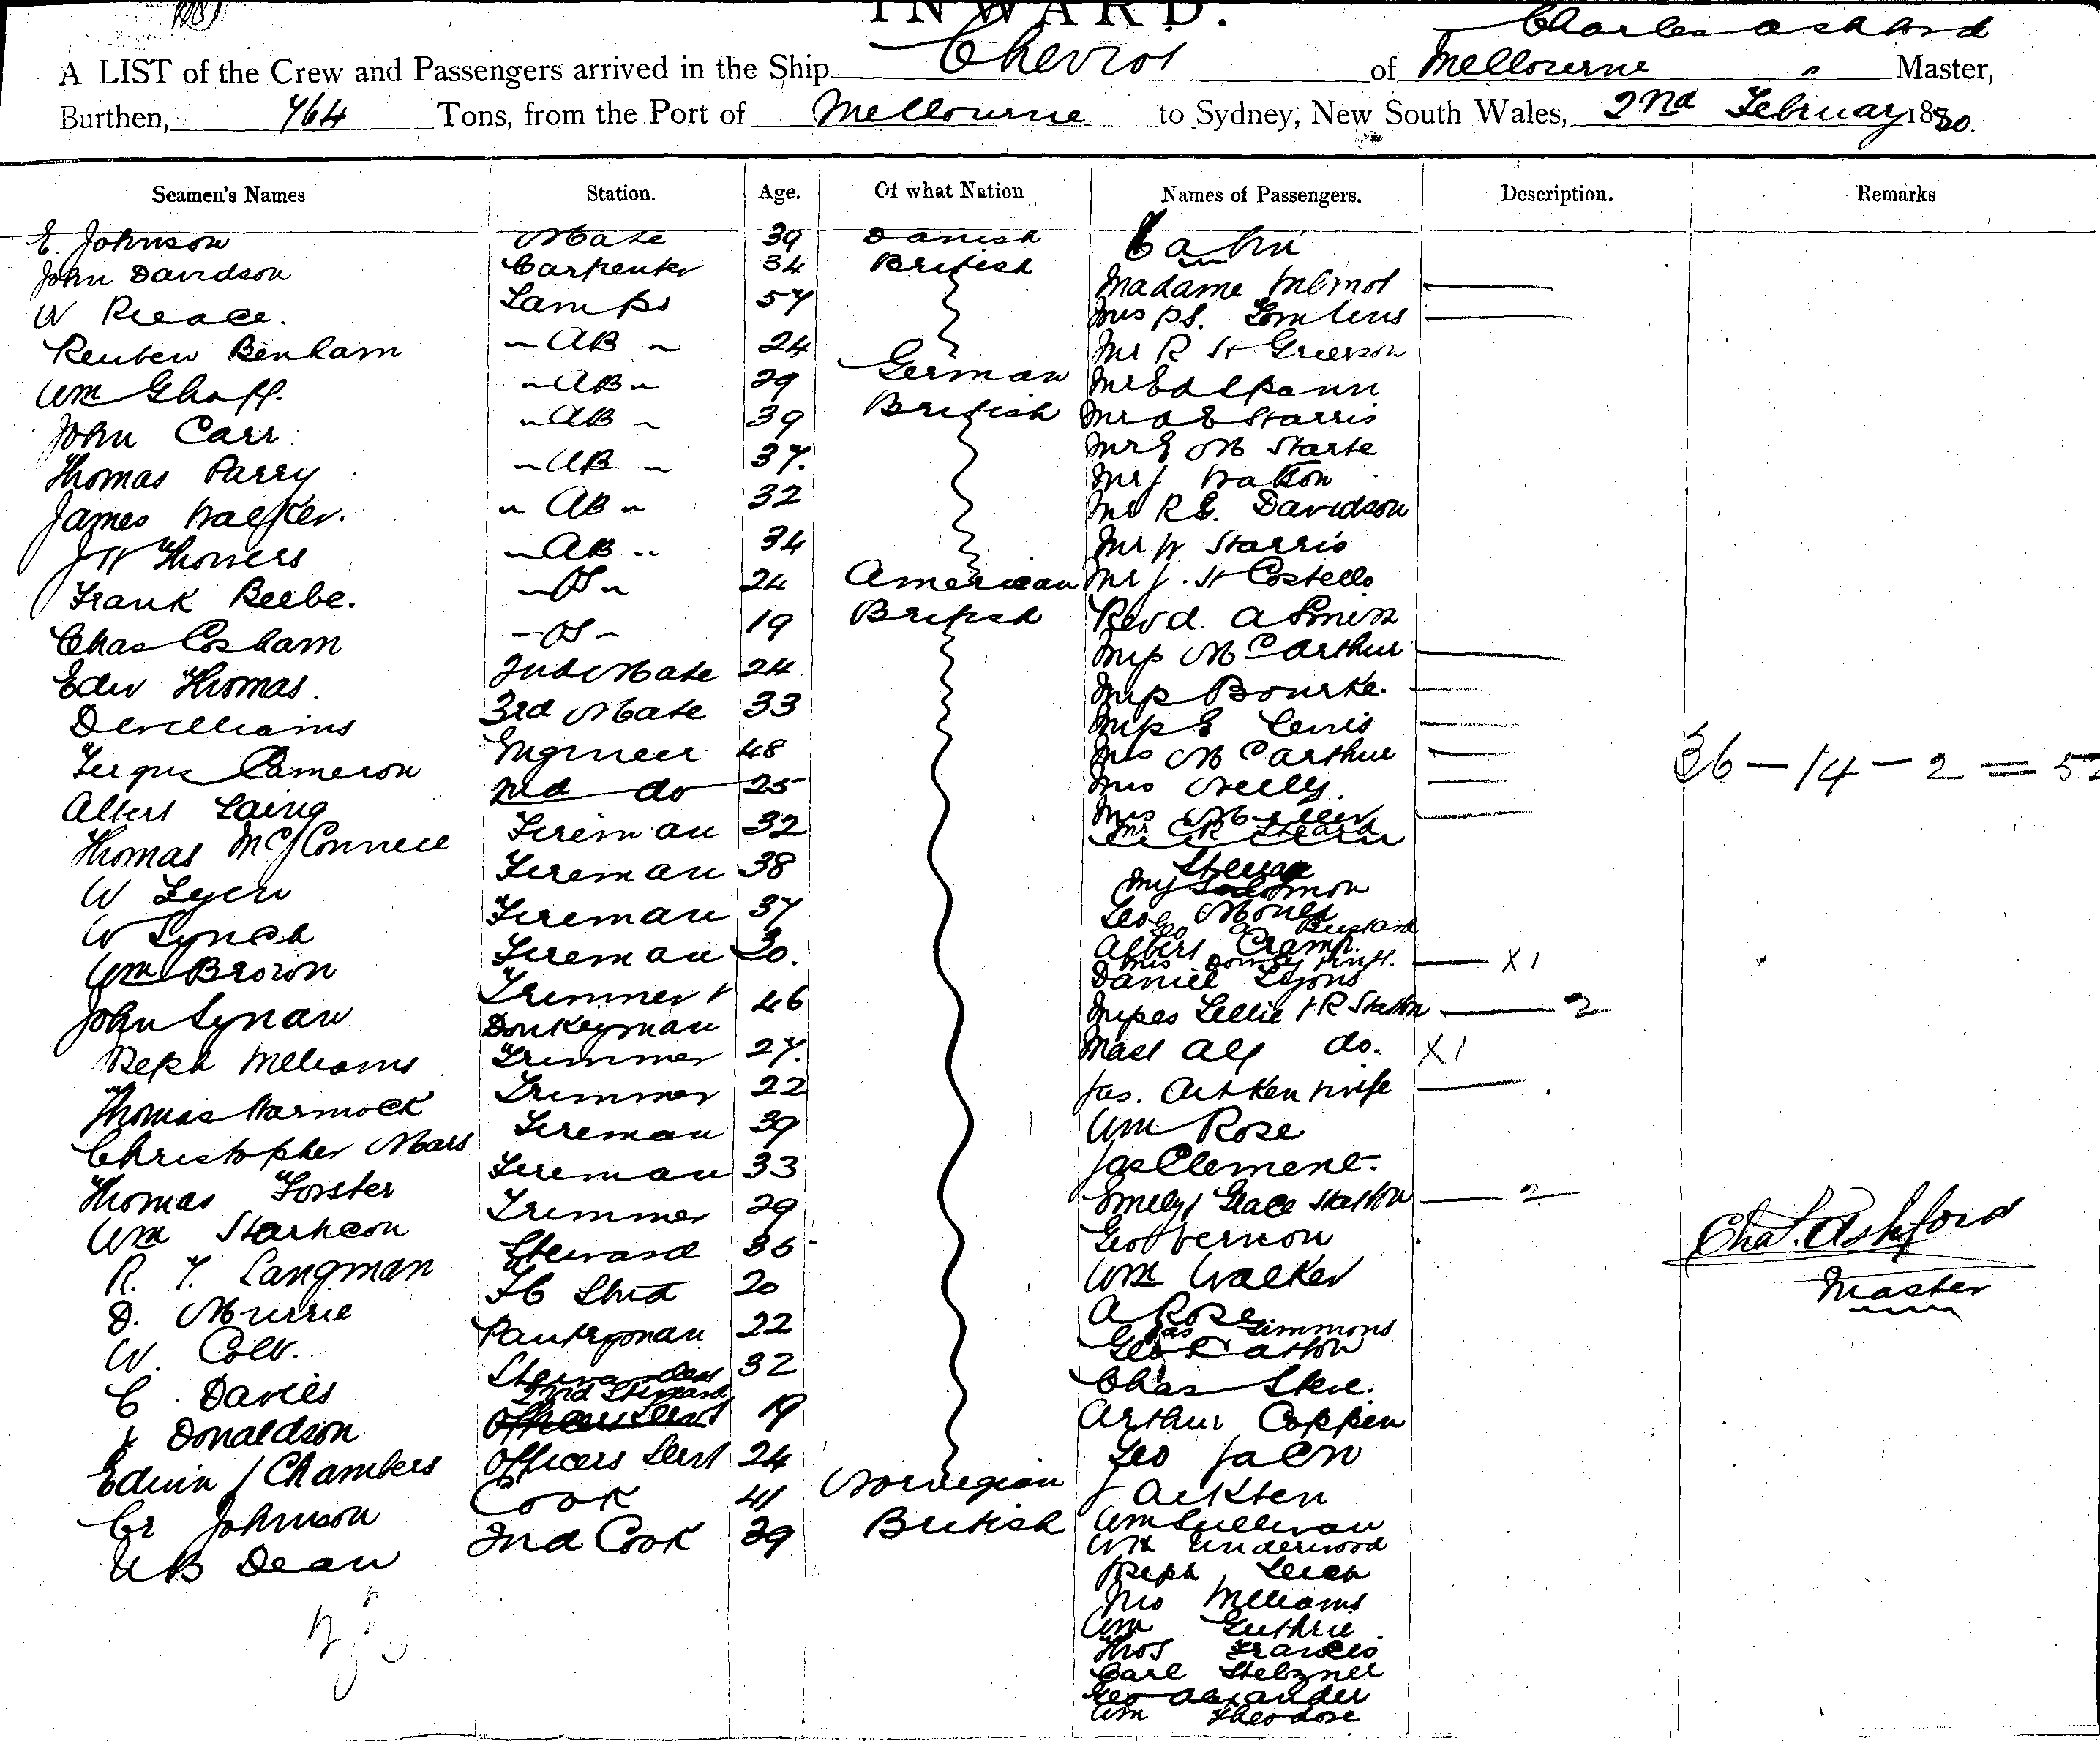 INWARD.
Charles Ashford
A LIST of the Crew and Passengers arrived in the Ship Cheviot of Melbourne " Master,
Burthen, 764 Tons, from the Port of Melbourne to Sydney, New South Wales, 2nd February 1880.
Seamen's Names Station. Age. Of what Nation Names of Passengers. Description. Remarks
E. Johnson Mate 39 Danish Cabin
John Davidson Carpenter 34 British Madame
W Pearce. Lamps 57 Mrs
Reuben Benham " AB " 24 Mr R H Grierson
Wm " AB " 29 German Mr
John Carr " AB " 39 British Mr A E Harris
Thomas Parry " AB " 37. Mr E M Harte
James Walker. " AB " 32 Mr J Watson
J W " AB " 34 Mr R E. Davidson
Mr W Harris
Frank Beebe. " OS " 24 American Mr J. H Costello
Chas Cosham " OS " 19 British Revd. A
Edw Thomas. 2nd Mate 24 Miss McCarthur
D Williams 3rd Mate 33 Miss Bourke.
Miss E Lewis
Fergus Cameron Engineer 48 Mrs McCarthur
Albert Laing 2nd do 25 Mrs
36 - 14 - 2 = 52
Thomas McConnell Fireman 32 Mrs
Mr
W Fireman 38 Steerage
W Lynch Fireman 37 Mr Solomon
Wm Brown Fireman 30. Geo
Albert Cramp.
Mrs X 1
Daniel Lyons
John Trimmer & Donkeyman 46 Misses Lellie & R Statton 2
Joseph Williams Trimmer 27. Mast Alf do. X 1
Thomas Trimmer 22 Jas. Aitken & wife
Christopher Mars Fireman 39 Wm Rose
Thomas Forster Fireman 33 Jas Clement.
Wm Trimmer 29 Emily & Grace Statton 2
R. T. Langman Steward 35 Geo Vernon
Chas. Ashford
Master
D. Murrie FC Stwd 20 Wm Walker
W. Pantryman 22 A Rose
Jas Simmons
C. Davies Stewardess 32 Geo
Chas
Donaldson 2nd Steward 19 Arthur Coppin
Edwin J Chambers Officers Servt 24 Geo
Cr Johnson Cook 41 Norwegian J Aitken
W B Dean 2nd Cook 29 British Wm Sullivan
Wm Underwood
Joseph Leech
Mrs Williams
Wm Guthrie
Thos Francis
Carl Stelzner
Geo Alexander
Wm Theodore